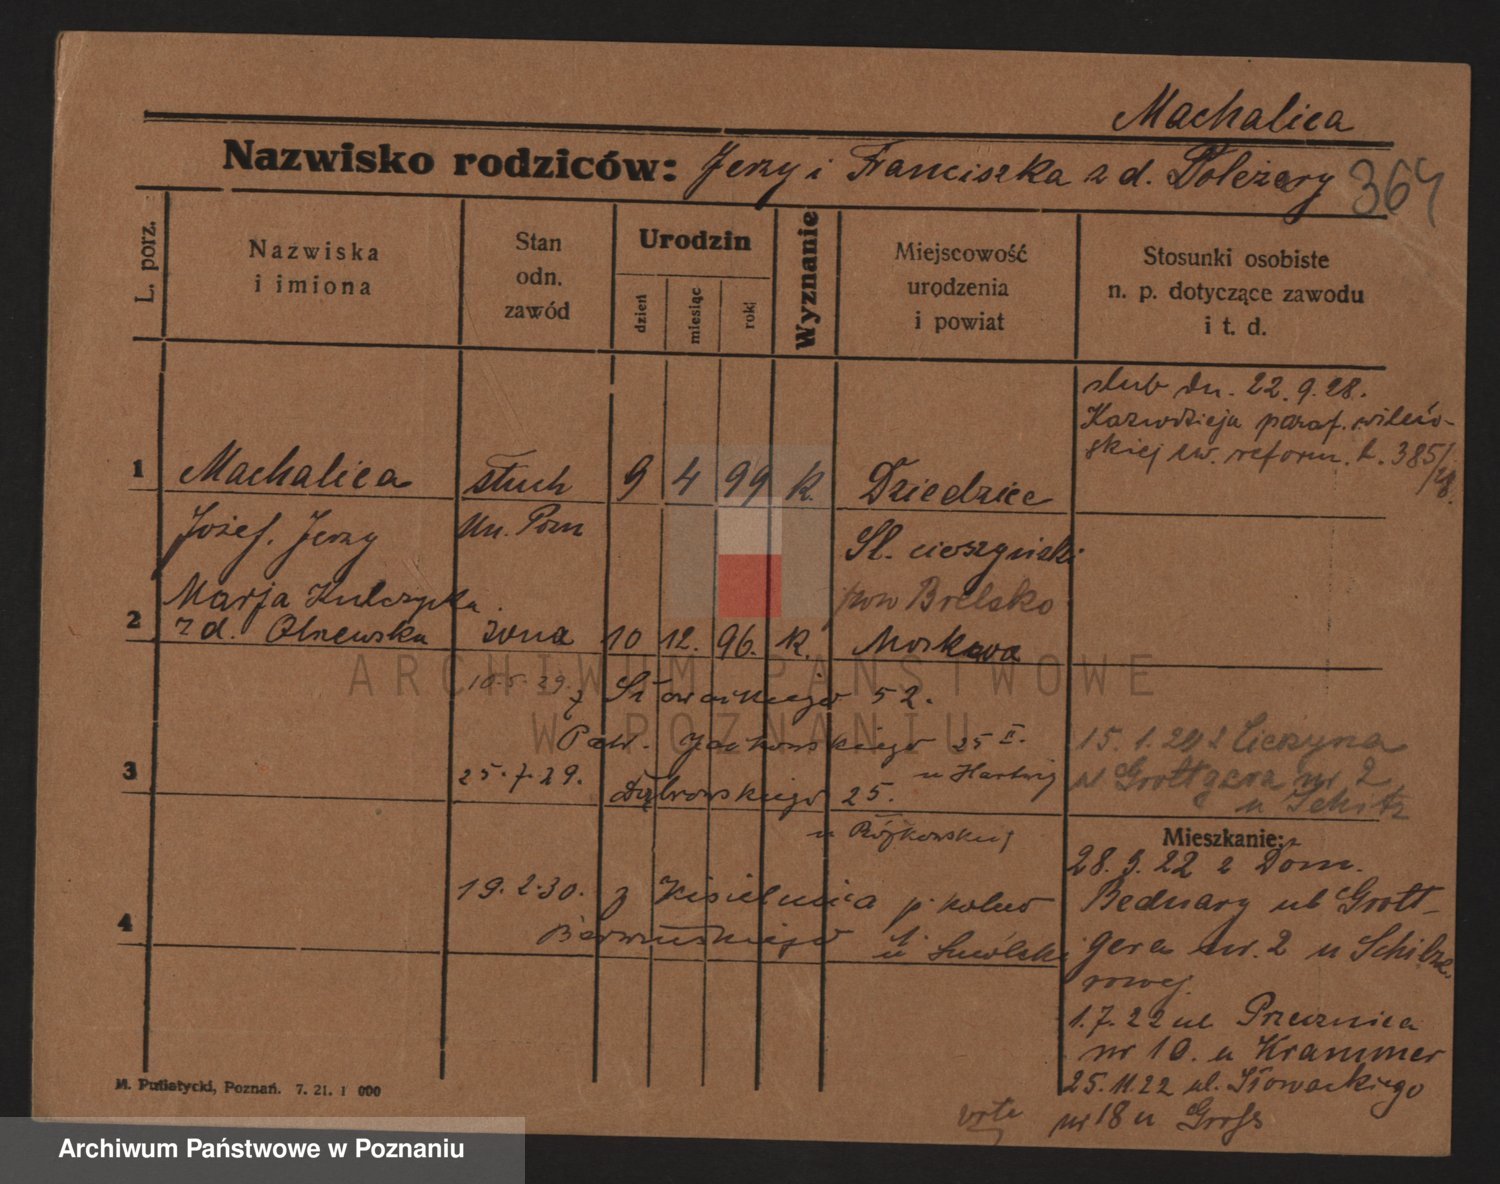 Machalica
Nazwisko rodziców: Jerzy i Franciszka z d. Doleżary 364
L. porz.
Nazwiska i imiona
Stan odn. zawód
Urodzin
dzień
miesiąc
rok
Wyznanie
Miejscowość urodzenia i powiat
Stosunki osobiste n. p. dotyczące zawodu i t. d.
ślub dn. 22.9.28.
Kaznodzieja paraf. wileń-
skiej ew. reform. L. 385/28.
1 Machalica słuch 9 4 99 K. Dziedzice
Józef, Jerzy Un. Pozn Śl. cieszyński
pow Bielsko
2 Marja Kulczycka
z d. Olszewska żona 10 12. 96. K. Moskwa
10.5.29. z Słowackiego 52.
Patr. Jackowskiego 25 II.
u Hartwig
3 25.7.29. Dąbrowskiego 25.
u Rójkowskiej
15.1.20 z Cieszyna
Grottgera nr 2
u Schilz
Mieszkanie:
28.3.22 z Dom.
Bednary ul Grott-
gera nr. 2 u Schilze-
rowej.
4 19.2.30. z Kisielnica p. Kolno
1.7.22 ul Przecznica
nr 10. u Krammer
25.11.22 ul. Słowackiego
nr 18 u Gross
M. Putiatycki, Poznań. 7. 21. 1 000
ARCHIWUM PAŃSTWOWE
W POZNANIU
Archiwum Państwowe w Poznaniu